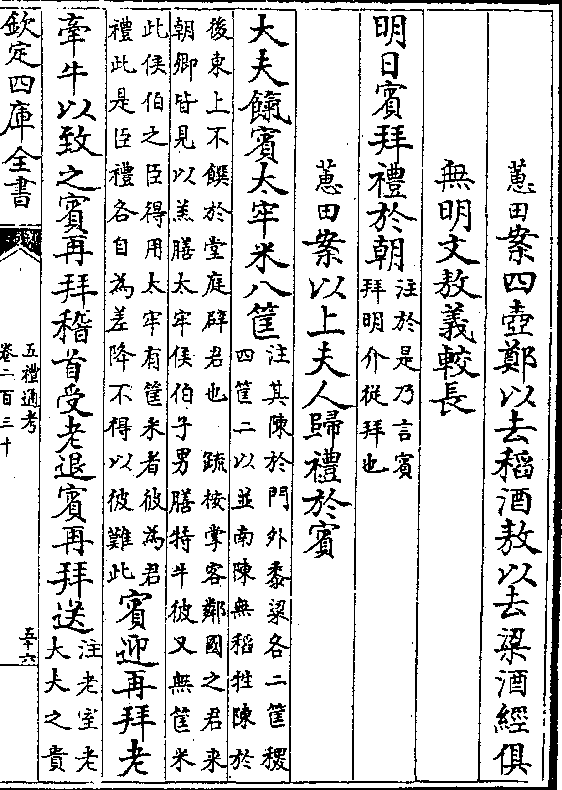 蕙田案四壺鄭以去稻酒敖以去梁酒經俱
無明文敖義較長
明日賓拜禮於朝
注於是乃言賓
拜明介從拜也
蕙田案以上夫人歸禮於賓
大夫餼賓太牢米八筐
注其陳於門外黍粱各二筐稷
四筐二以並南陳無稻牲陳於
後東上不饌於堂庭辟君也 疏按掌客鄰國之君来
朝卿皆見以羔膳太牢侯伯子男膳特牛彼又無筐米
此侯伯之臣得用太牢有筐米者彼為君
禮此是臣禮各自為差降不得以彼難此
賓迎再拜老
牽牛以致之賓再拜稽首受老退賓再拜送
注老室老
大夫之貴
欽定四庫全書
五禮通考
卷二百三十
五十六